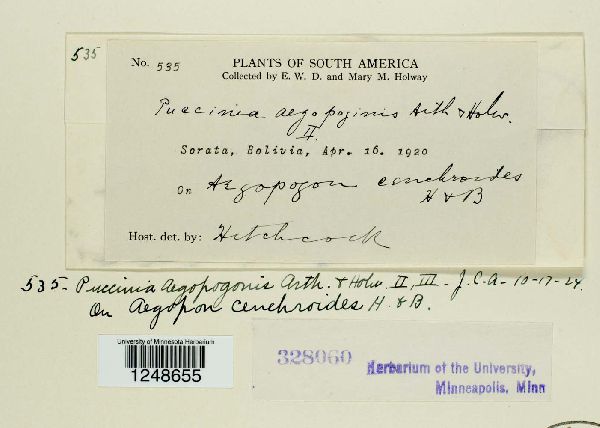 535
No. 535
PLANTS OF SOUTH AMERICA
Collected by E. W. D. and Mary M. Holway
Puccinia aegopoginis Arth & Holw.
II.
Sorata, Bolivia, Apr. 16. 1920
On Aegopogon cenchroides
H & B
Host. det. by: Hitchcock
535- Puccinia Aegopogonis Arth. & Holw. II, III - J.C.A- 10-17-24.
On Aegopon cenchroides H. & B.
University of Minnesota Herbarium
1248655
328060
Herbarium of the University,
Minneapolis, Minn